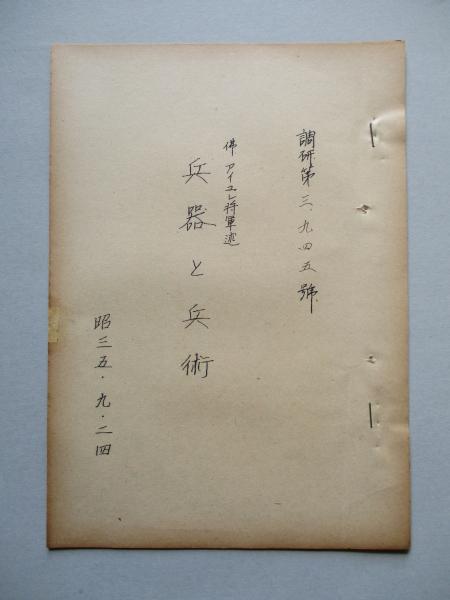 調研第三、九四五號
佛アイユレ将軍述
兵器と兵術
昭三五・九・二四